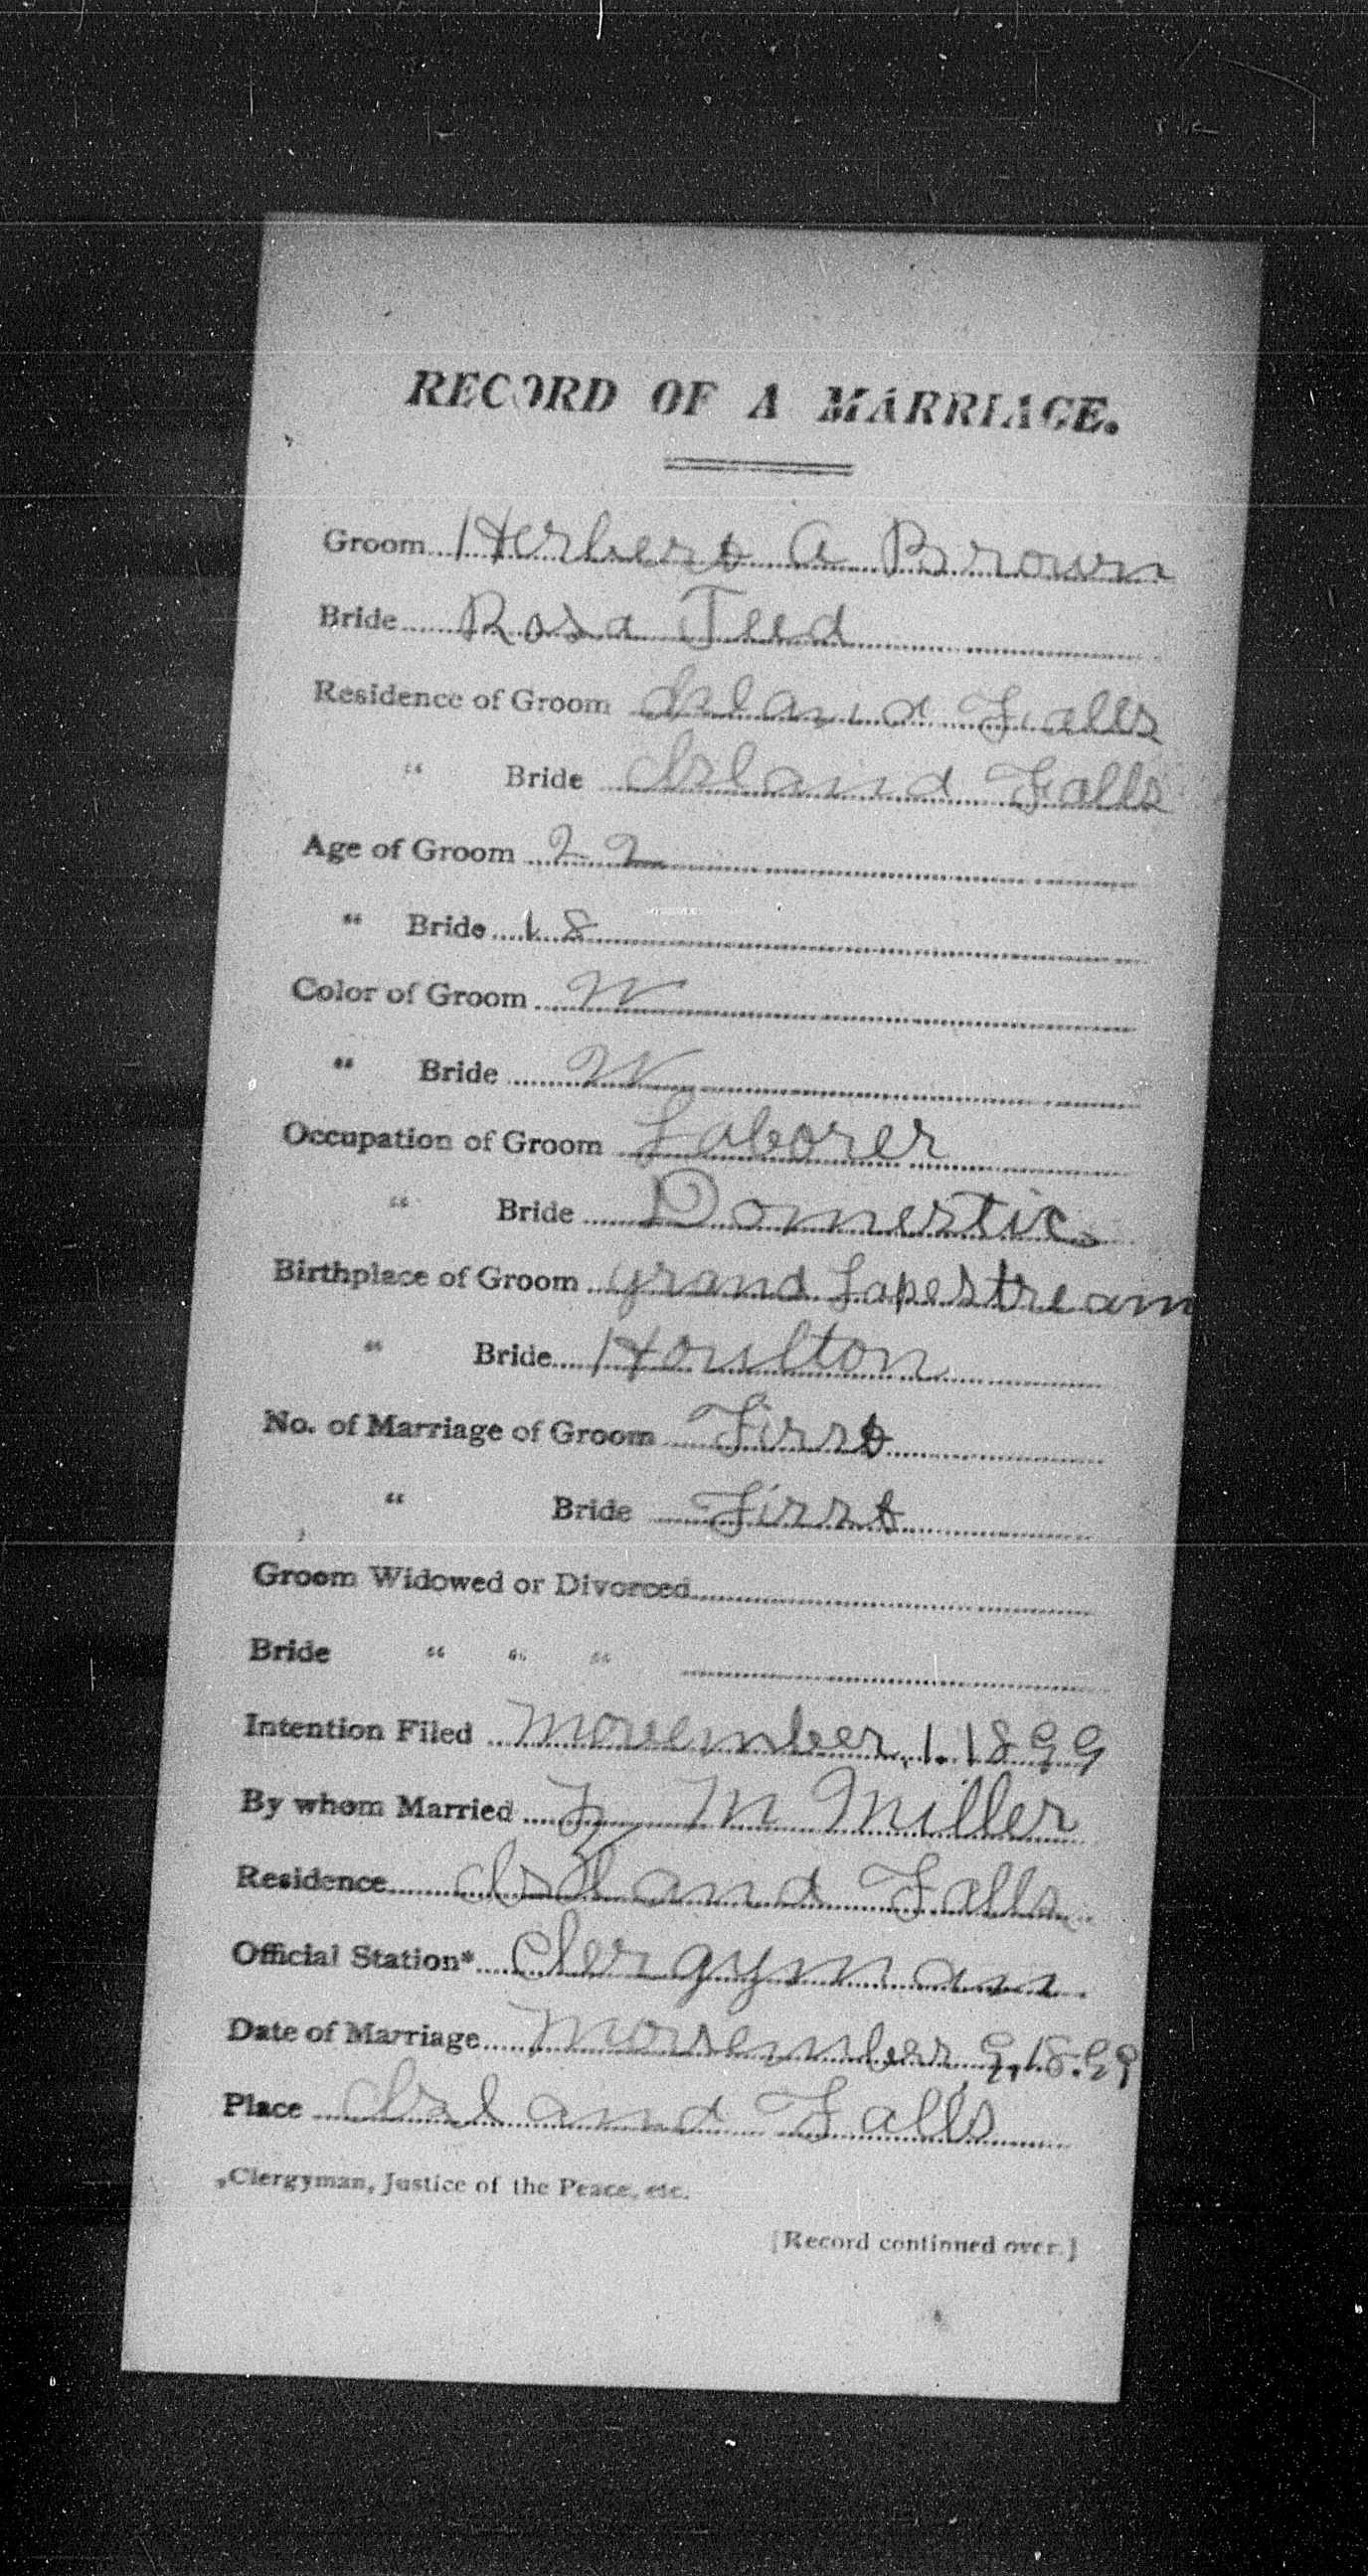 RECORD OF A MARRIAGE.
Groom Herbert A Brown
Bride Rosa Teed
Residence of Groom Island Falls
" Bride Island Falls
Age of Groom 22
" Bride 18
Color of Groom W
" Bride W
Occupation of Groom Laborer
" Bride Domestic
Birthplace of Groom Grand Lapestream
" Bride Houlton
No. of Marriage of Groom First
" Bride First
Groom Widowed or Divorced
Bride " " "
Intention Filed November 1. 1899
By whom Married M Miller
Residence Island Falls
Official Station* Clergyman
Date of Marriage November 9, 1899
Place Island Falls
*Clergyman, Justice of the Peace, etc.
[Record continued over.]